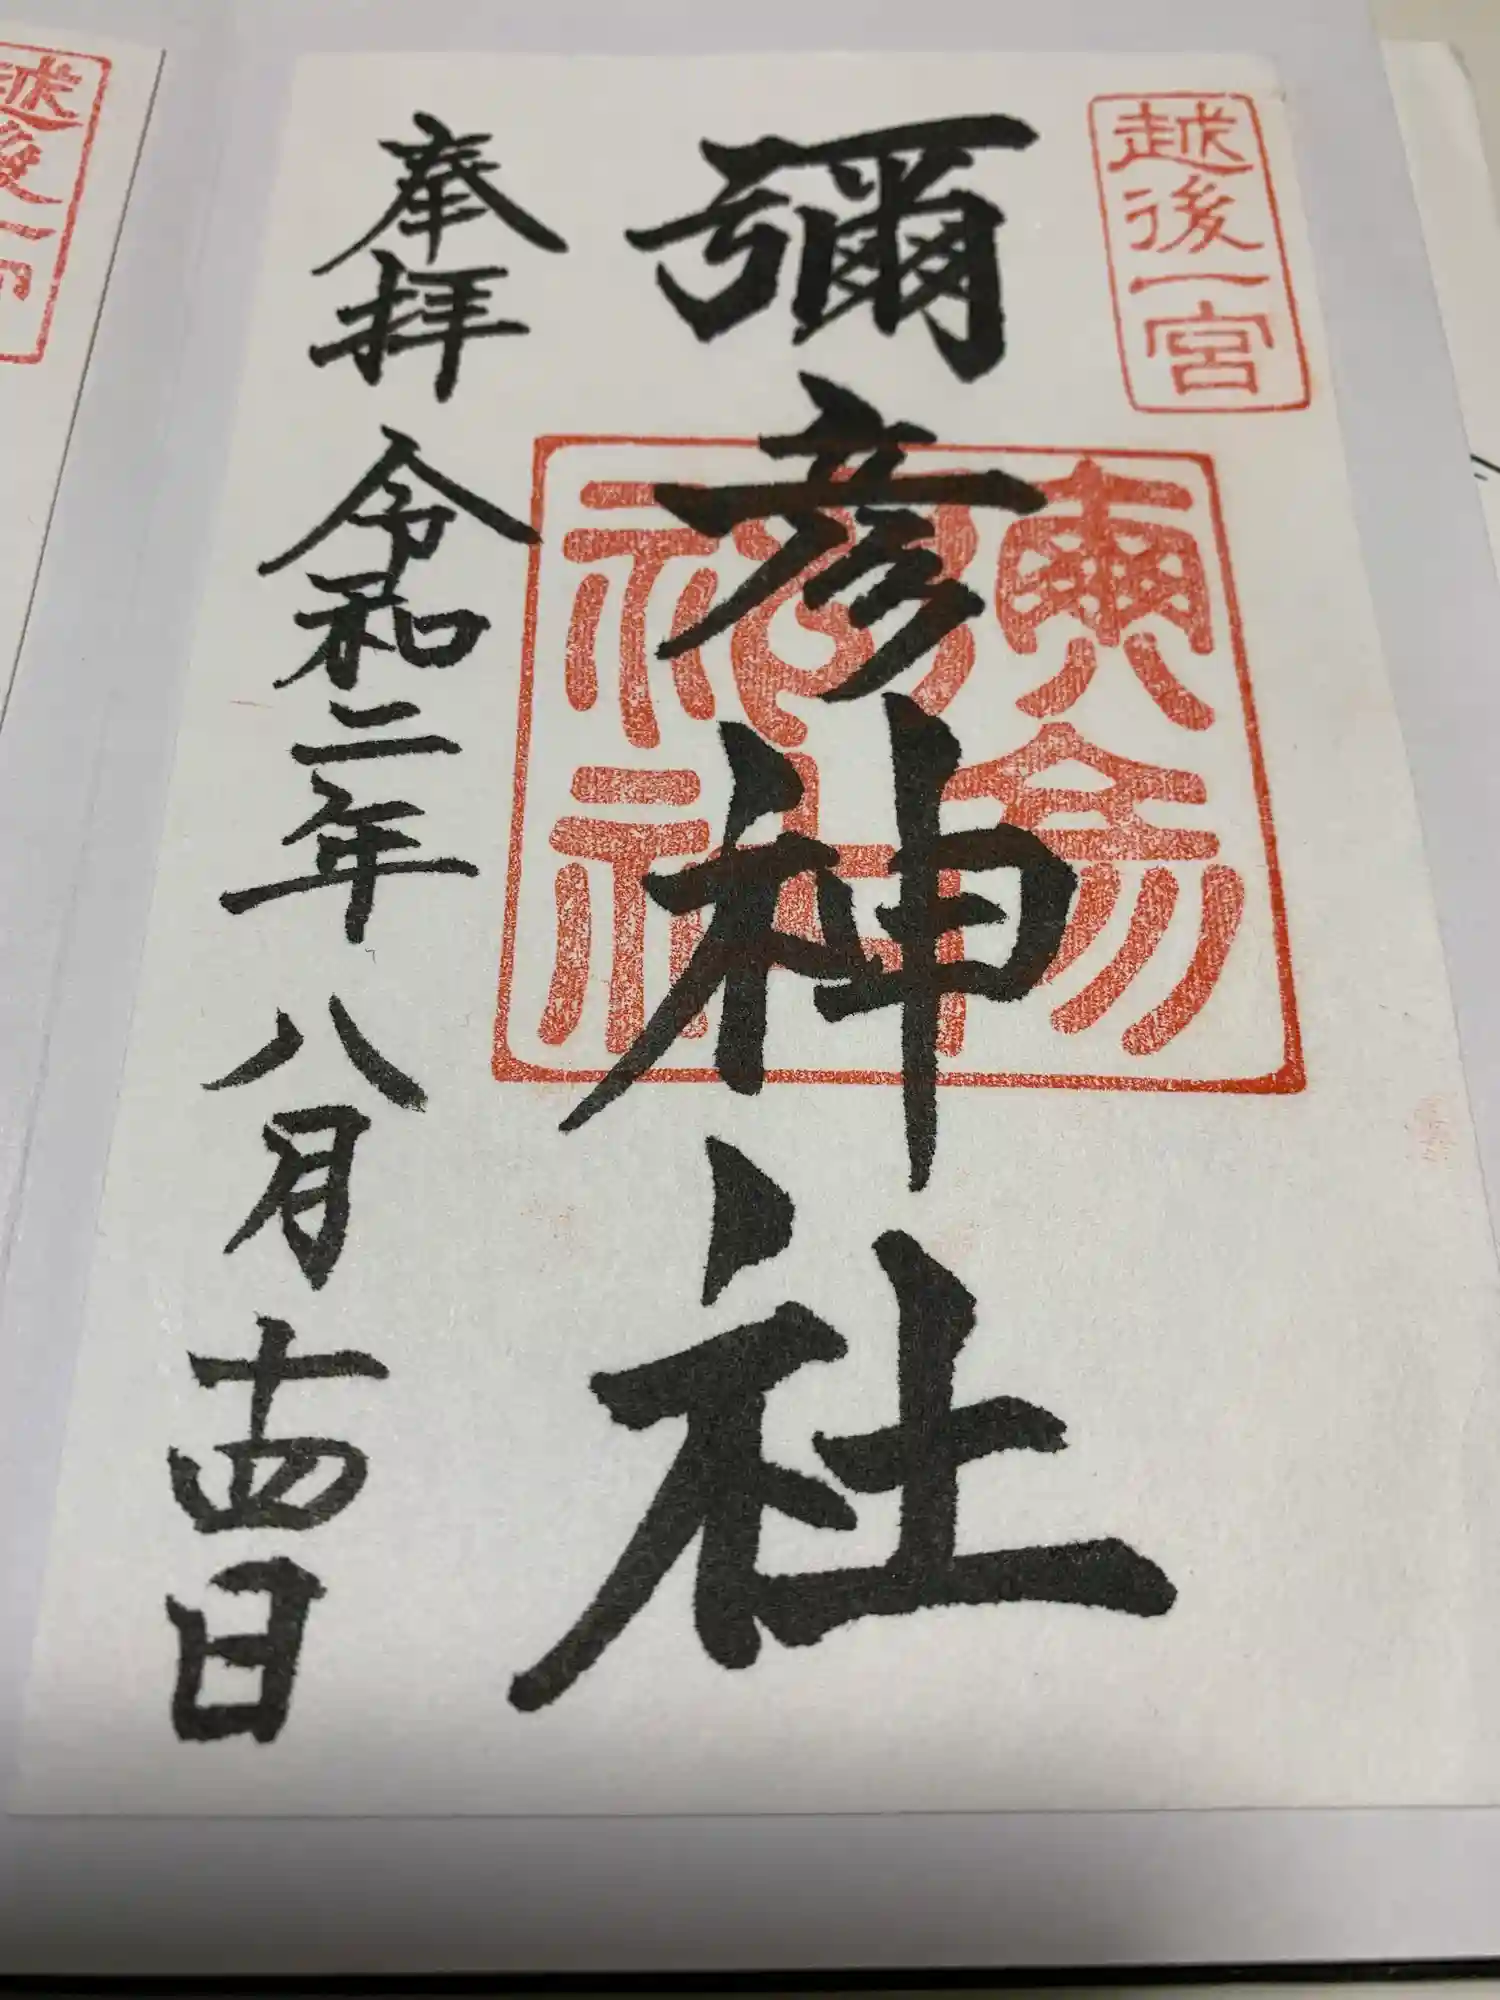 越後一宮
彌彦神社
奉拝 令和二年 八月十四日
越後一